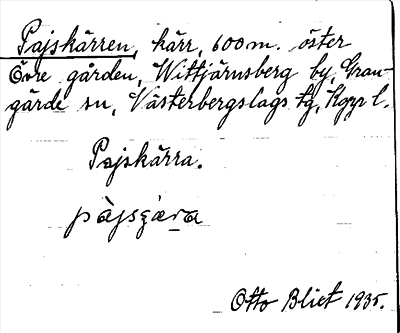 Pajskärren, kärr, 600 m. öster
Övre gården, Wittjärnsberg by, Gran-
gärde sn, Västerbergslags tg, Kopp l.
Pajskärra.
Otto Blixt 1935.